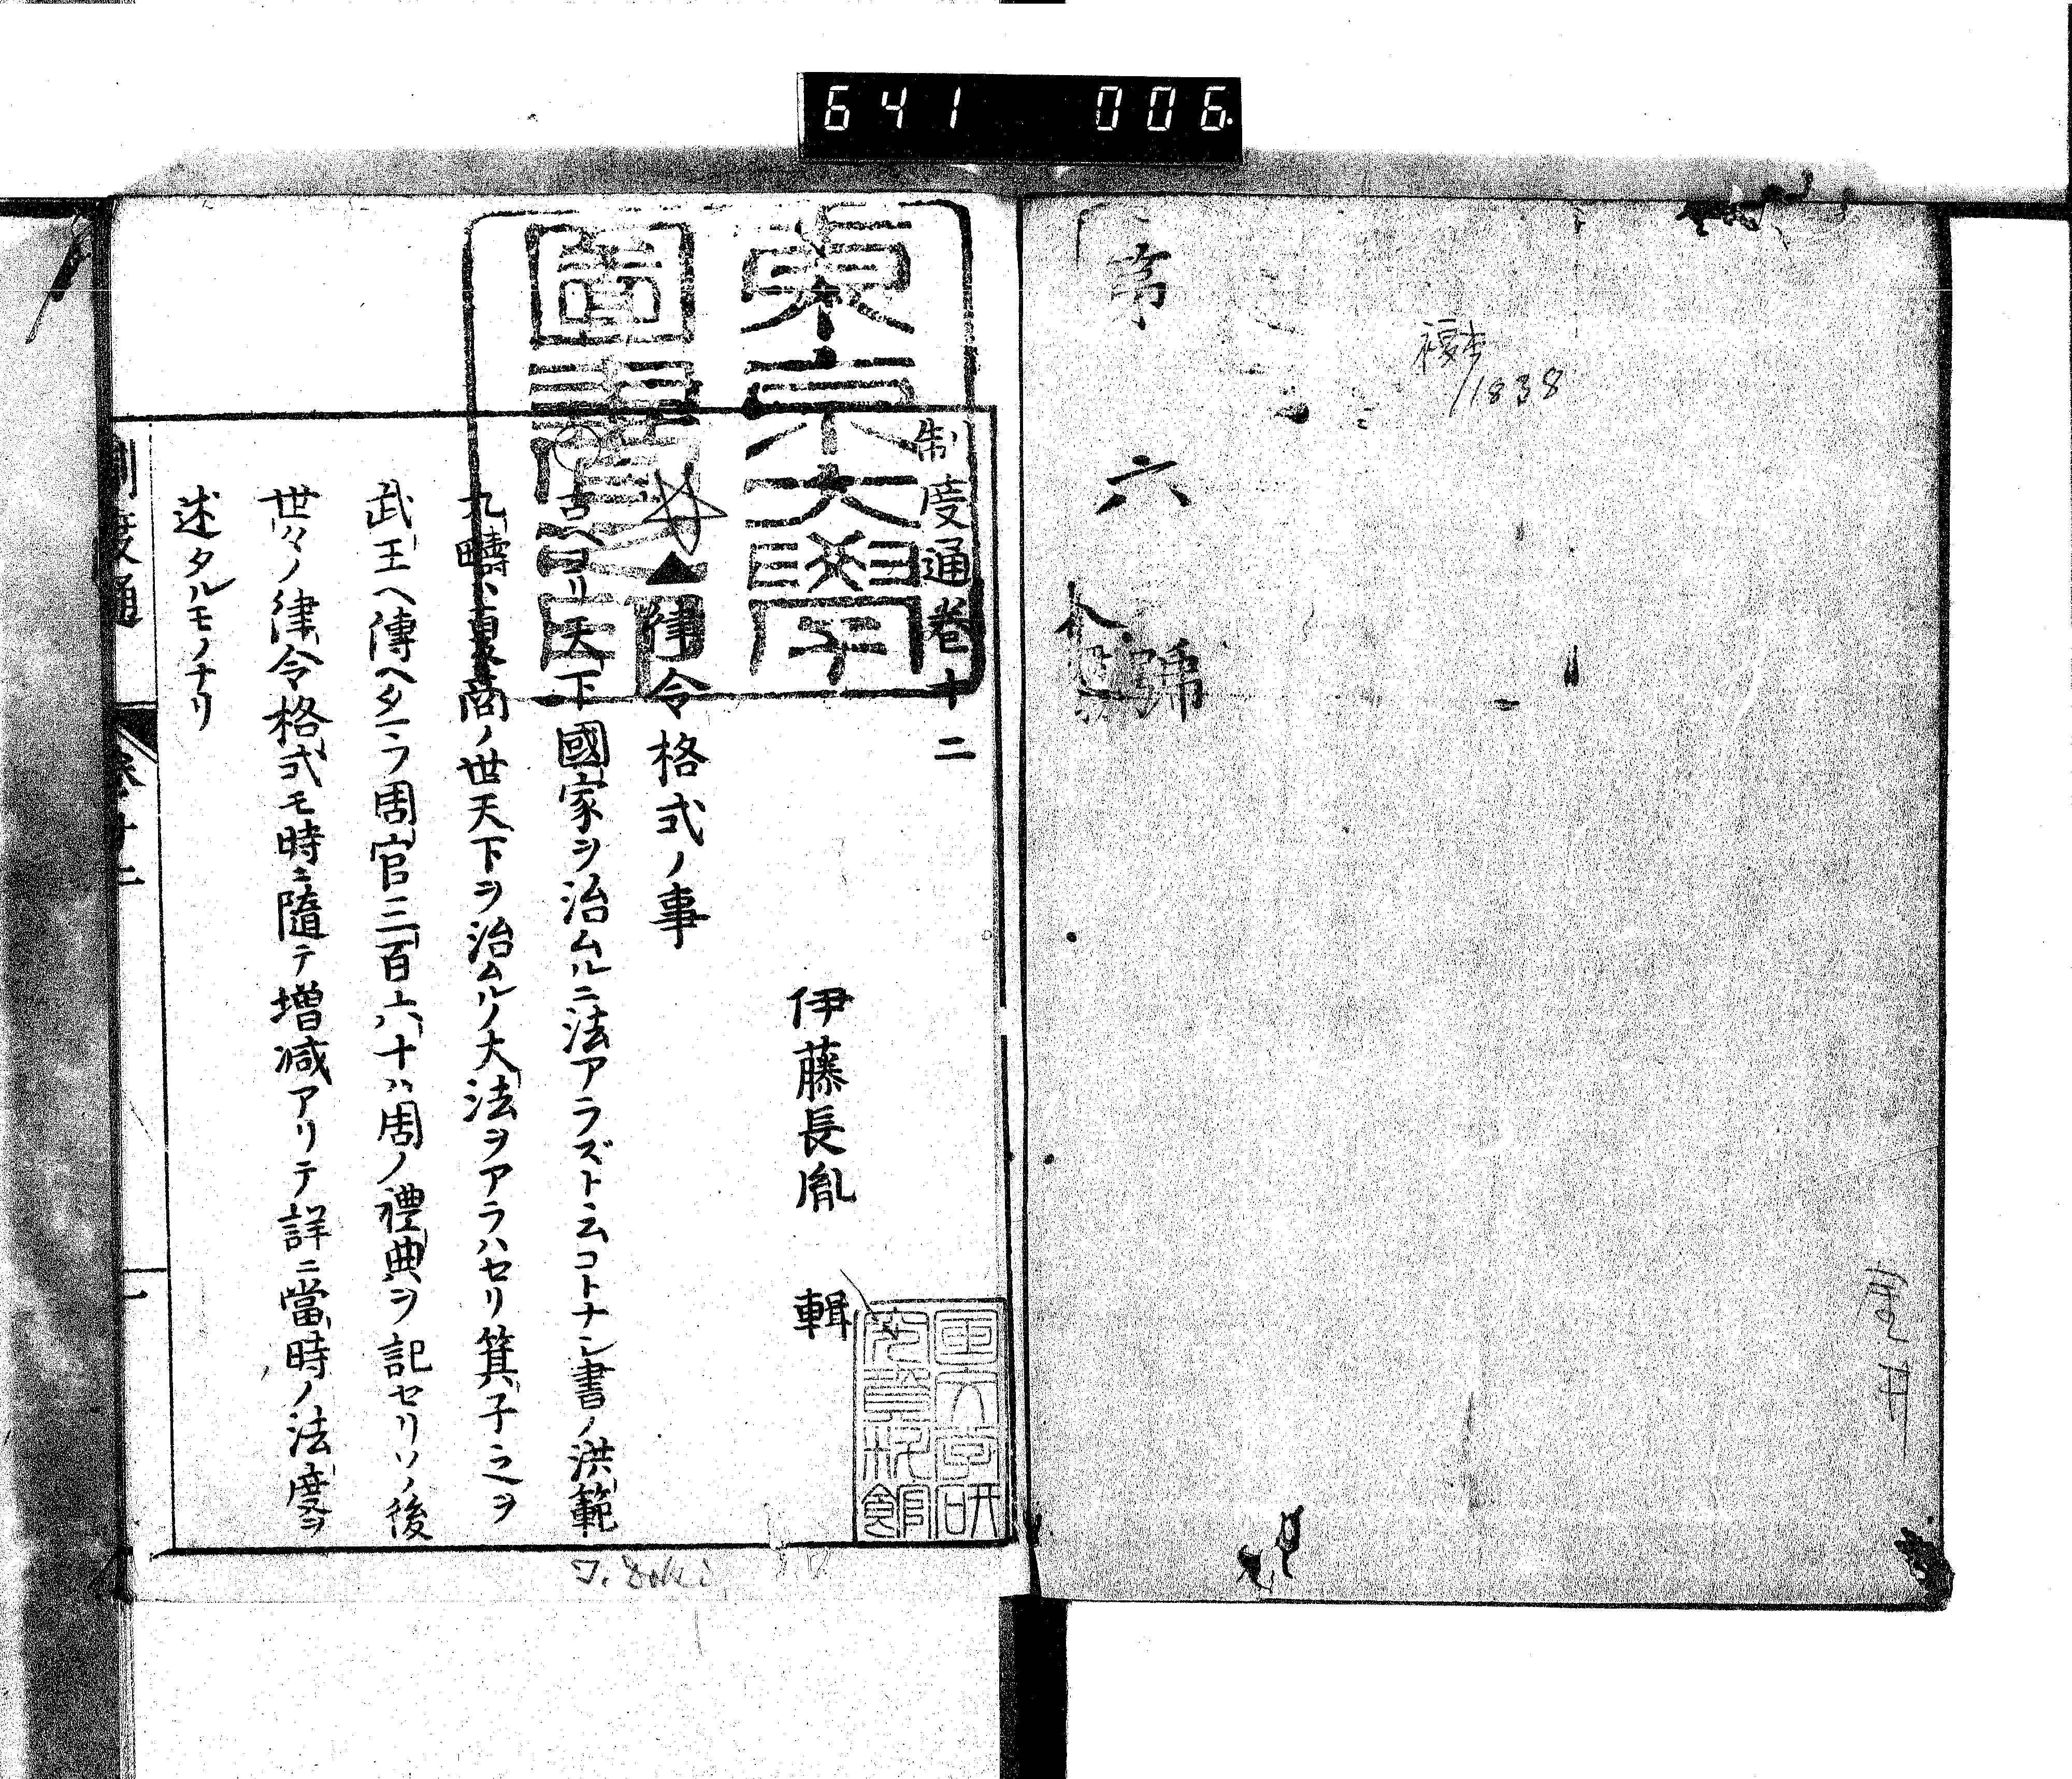 641 006
第
六
號
複本
11838
制度通卷十二
伊藤長胤 輯
▲律令格式ノ事
古ヘヨリ天下國家ヲ治ムルニ法アラズト云コトナシ書ノ洪範
九疇ハ夏商ノ世天下ヲ治ムルノ大法ヲアラハセリ箕子之ヲ
武王ヘ傳ヘタマフ周官三百六十ハ周ノ禮典ヲ記セリソノ後
世々ノ律令格式モ時ニ隨テ增減アリテ詳ニ當時ノ法度ヲ
述タルモノナリ
東京大學圖書
制度通 卷十二 一